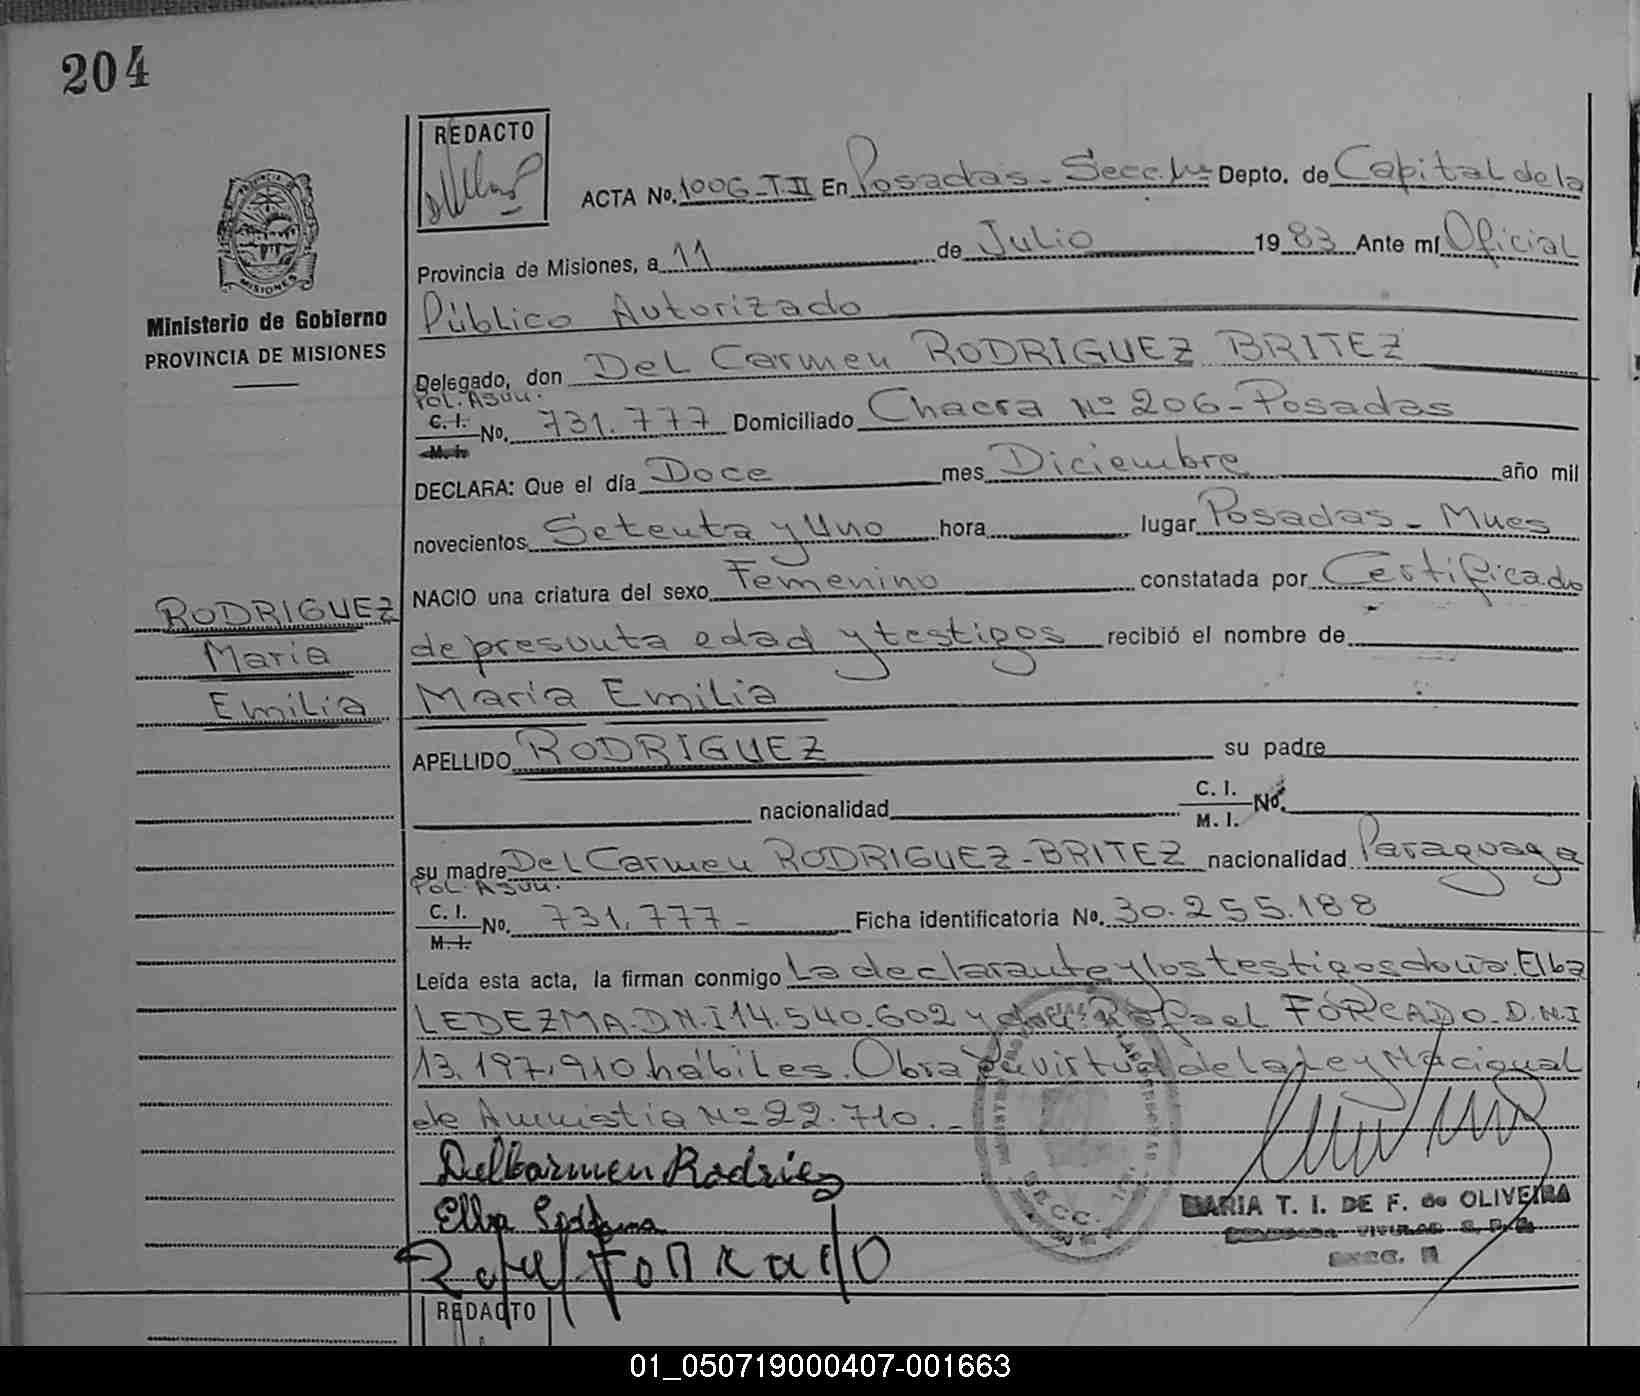 204
REDACTO
ACTA No. 1006-T.II En Posadas - Secc. Depto. de Capital de la
Provincia de Misiones, a 11 de Julio 1983 Ante mí Oficial
Público Autorizado
Ministerio de Gobierno
PROVINCIA DE MISIONES
Delegado, don Del Carmen RODRIGUEZ BRITEZ
POL. ASUU.
C. I. No. 731.777 Domiciliado Chacra Nº 206 - Posadas
M. I.
DECLARA: Que el día Doce mes Diciembre año mil
novecientos Setenta y Uno hora lugar Posadas - Mnes
NACIO una criatura del sexo Femenino constatada por Certificado
de presunta edad y testigos recibió el nombre de
RODRIGUEZ
María
Emilia
María Emilia
APELLIDO RODRIGUEZ su padre
nacionalidad C. I. No.
M. I.
su madre Del Carmen RODRIGUEZ - BRITEZ nacionalidad Paraguaya
POL. ASUU.
C. I. No. 731.777 - Ficha identificatoria No. 30.255.188
M. I.
Leída esta acta, la firman conmigo La declarante y los testigos doña: Elba
LEDEZMA. D.N.I 14.540.602 y don: Rafael FORCADO. D.N.I
13.197.910 hábiles. Obra en virtud de la Ley Nacional
de Amnistia Nº 22.710. -
Delcarmen Rodriez
Elba
MARIA T. I. DE F. de OLIVEIRA
Rafael Forkado
SECC.
REDACTO
01_050719000407-001663